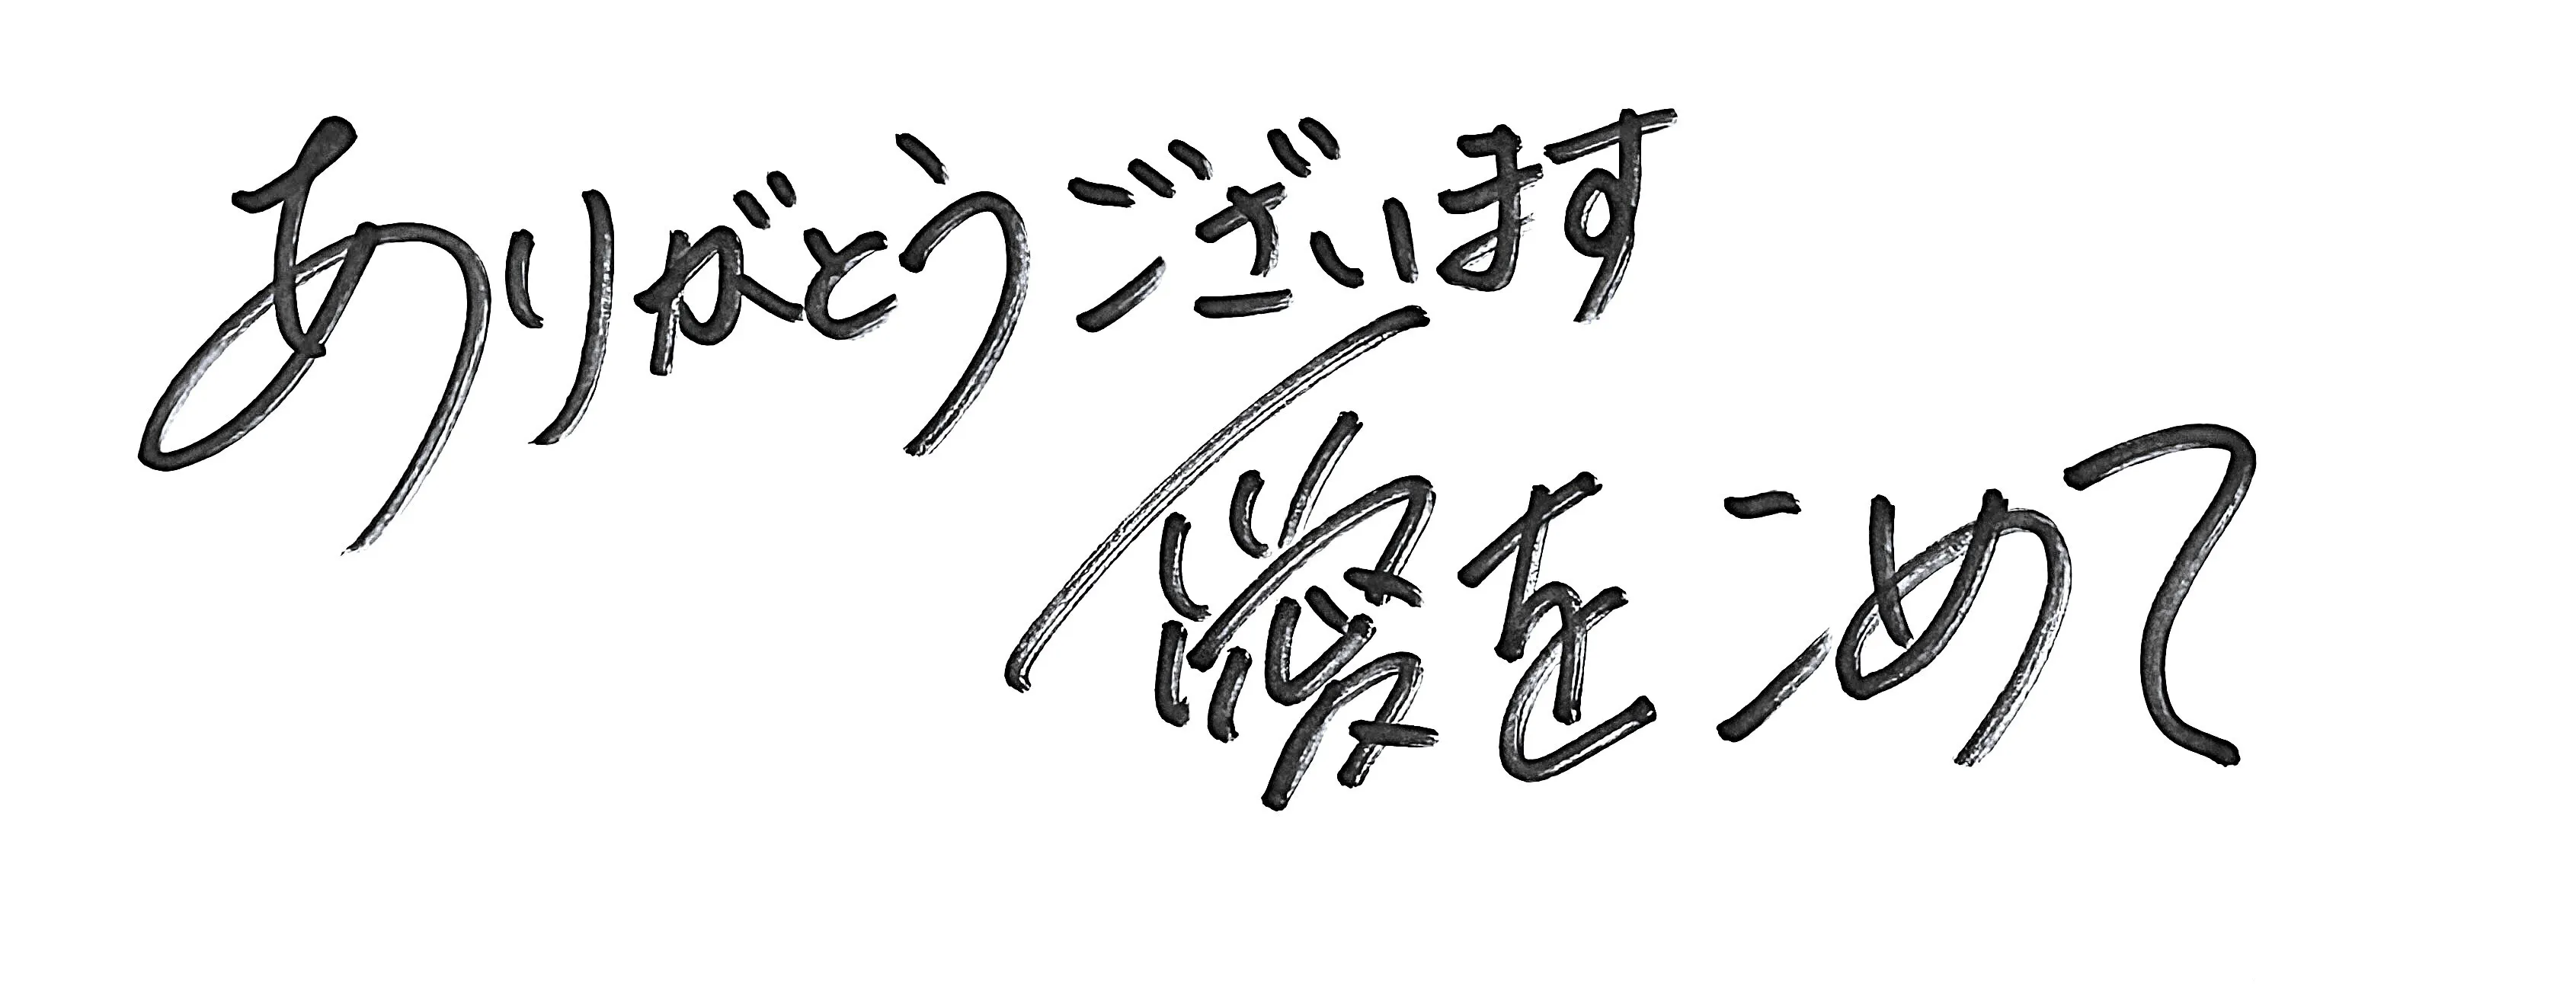 ありがとうございます
愛をこめて